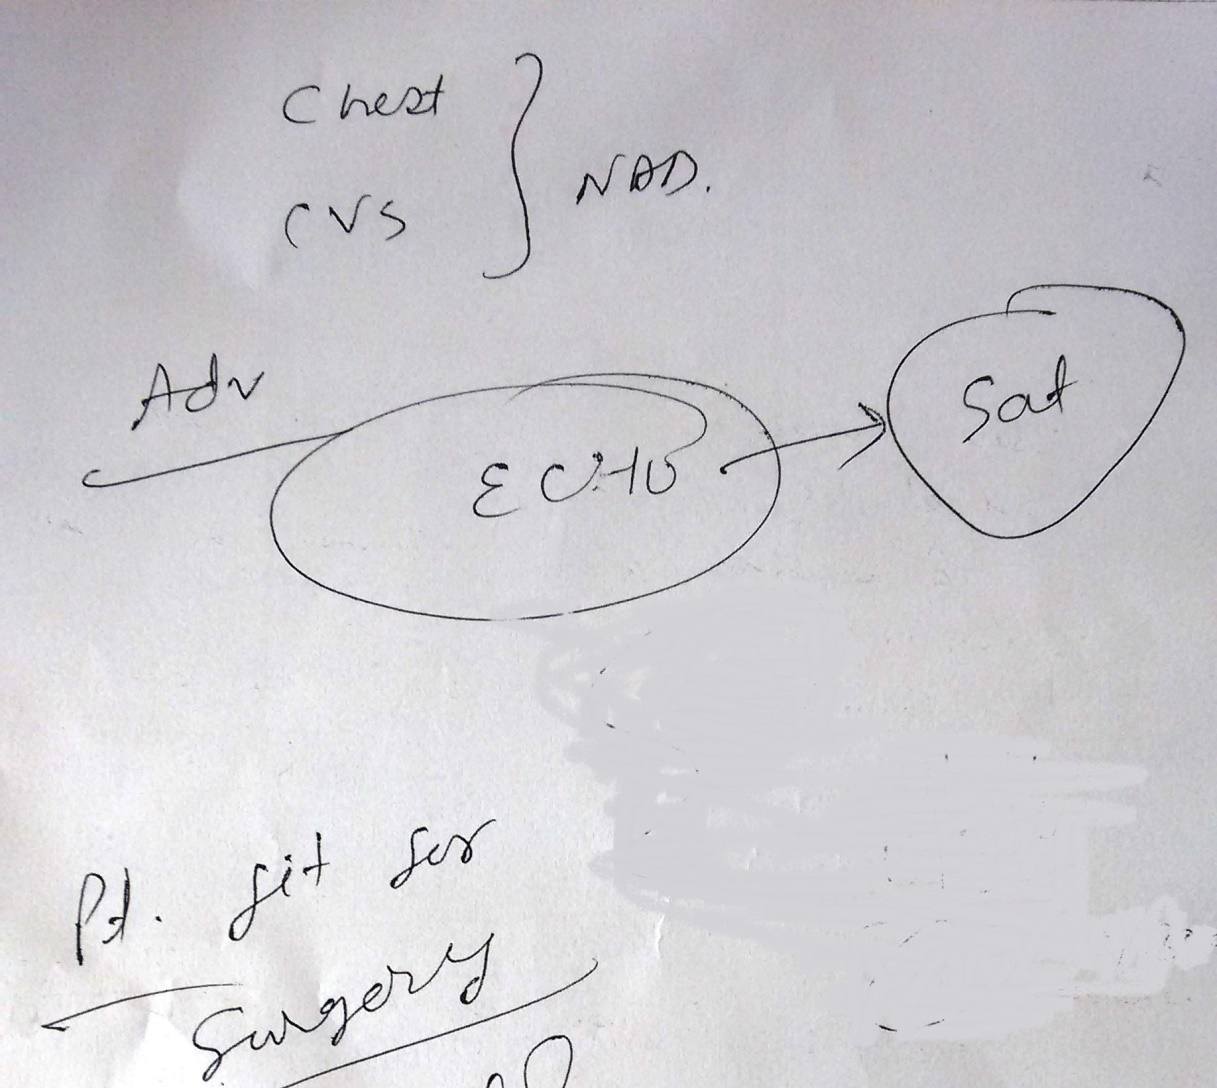 Chest
CVS } NAD.
Adv
ECHO → Sat
Pt. fit for
Surgery